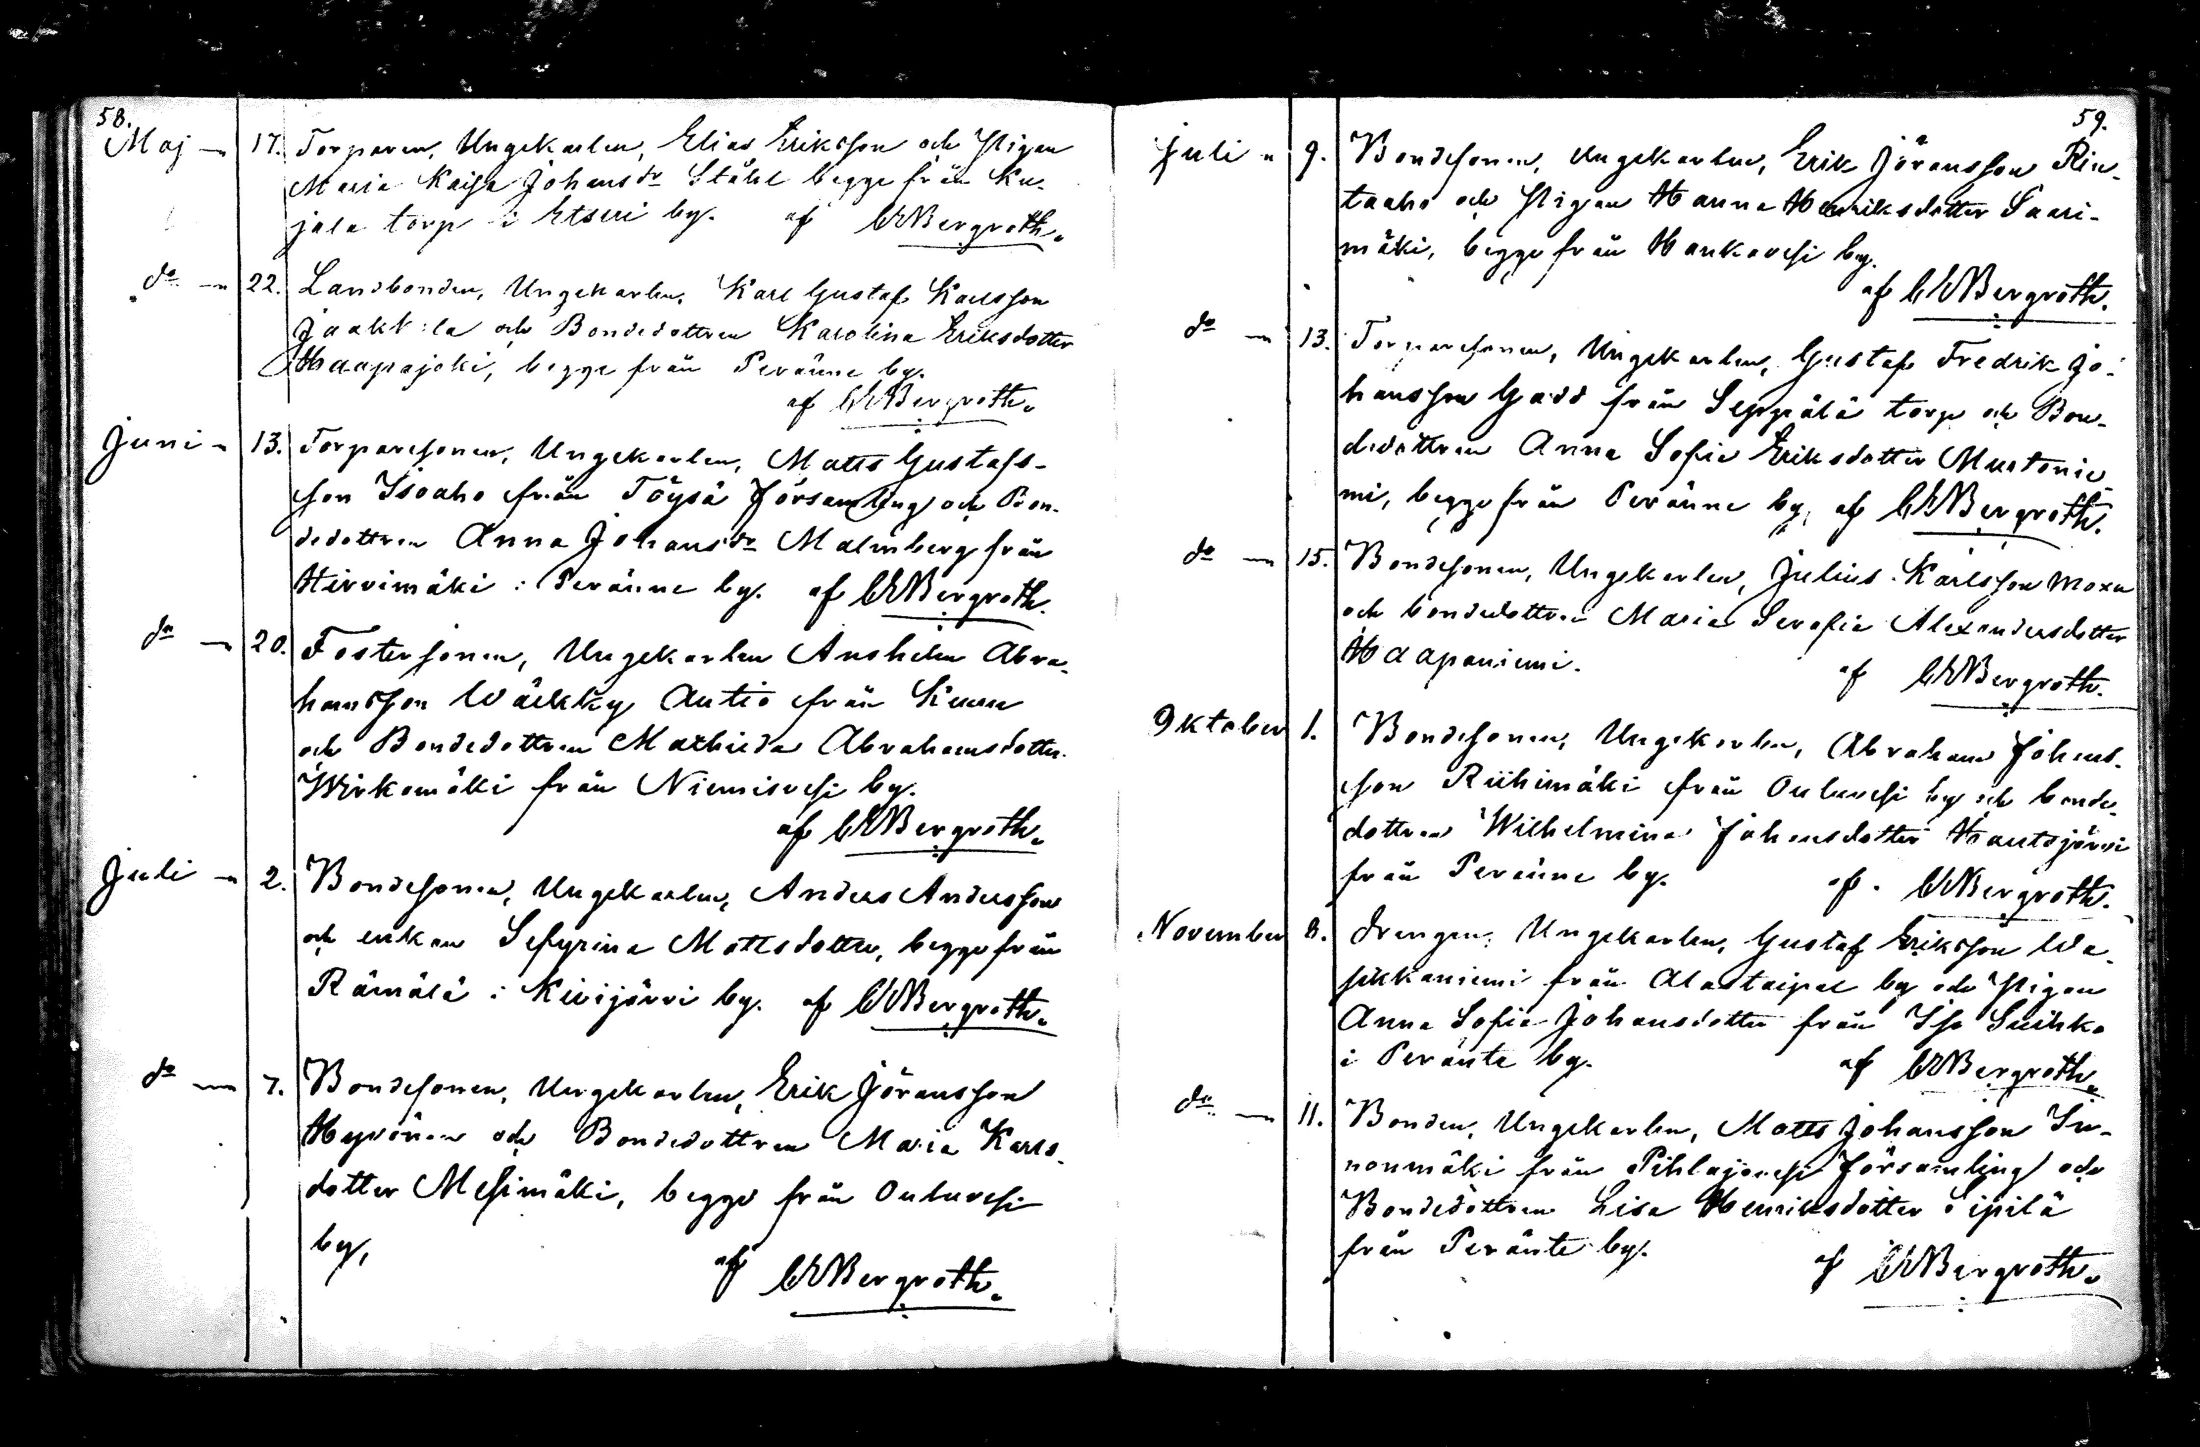 58.
Maj — 17. Torparen, Ungekarlen, Elias Eriksson och Pigan
Maria Kaisa Johansdr Ståhl begge från Ku-
jala torp i Etseri by. af CEBergroth.
do — 22. Landbonden, Ungekarlen, Karl Gustaf Karlsson
Jaakkola och Bondedottren Karolina Eriksdotter
Haapajoki, begge från Peränne by.
af CEBergroth.
Juni — 13. Torparesonen, Ungekarlen, Matts Gustafs-
son Isoaho från Töysä församling och Bon-
dedottren Anna Johansdr Malmberg från
Hirvimäki i Peränne by. af CEBergroth.
do — 20. Fostersonen, Ungekarlen Anshelm Abra-
hamsson Wäliky Autio från
och Bondedottren Mathilda Abrahamsdotter
Wirkamäki från Niemisvesi by.
af CEBergroth.
Juli — 2. Bondesonen, Ungekarlen, Anders Andersson
och enkan Sefyrina Mattsdotter, begge från
Rämälä i Kivijärvi by. af CEBergroth.
do — 7. Bondesonen, Ungekarlen, Erik Jöransson
Hyvönen och Bondedottren Maria Karls-
dotter Mesimäki, begge från Ouluvesi
by, af CEBergroth.
59.
Juli — 9. Bondesonen, Ungekarlen, Erik Jöransson Rin-
taaho och Pigan Hanna Henriksdotter Saari-
mäki, begge från Hankavesi by.
af CEBergroth.
do — 13. Torparesonen, Ungekarlen, Gustaf Fredrik Jo-
hansson Gadd från Seppälä torp och Bon-
dedottren Anna Sofia Eriksdotter Murtonie-
mi, begge från Peränne by, af CEBergroth.
do — 15. Bondesonen, Ungekarlen, Julius Karlsson Moxu
och bondedottren Maria Serafia Alexandersdotter
Haapaniemi. af CEBergroth.
Oktober 1. Bondesonen, Ungekarlen, Abraham Johans-
son Riihimäki från Ouluvesi by och bonde-
dottren Wilhelmina Johansdotter Hautojärvi
från Peränne by. af CEBergroth.
November 8. Drengen, Ungekarlen, Gustaf Eriksson Wa-
sikkaniemi från Alastaipal by och Pigan
Anna Sofia Johansdotter från Iso Suihko
i Peränte by. af CEBergroth.
do — 11. Bonden, Ungekarlen, Matts Johansson In-
nonmäki från Pihlajavesi församling och
Bondedottren Lisa Henriksdotter Sipilä
från Peränte by. af CEBergroth.